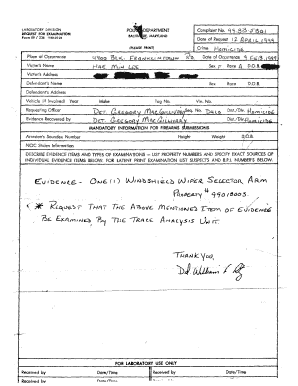 LABORATORY DIVISION
REQUEST FOR EXAMINATION
POLICE DEPARTMENT
BALTIMORE, MARYLAND
Complaint No.
Date of Request 12 APRIL, 1999
Crime HOMICIDE
(PLEASE PRINT)
Place of Occurrence 4400 BLK. FRANKLINTOWN RD Date of Occurrence 9 FEB 1999
Victim's Name HAE MIN LEE Sex F Race A D.O.B.
Victim's Address
Defendant's Name Sex Race D.O.B.
Defendant's Address
Vehicle if Involved Year Make Tag No. Vin. No.
Requesting Officer DET. GREGORY MACGILLIVARY Seq. No. Dist./Div. HOMICIDE
Evidence Recovered by DET. GREGORY MACGILLIVARY Dist./Div. HOMICIDE
MANDATORY INFORMATION FOR FIREARMS SUBMISSIONS
Arrestee's Soundex Number Height Weight D.O.B.
NCIC Stolen Information
DESCRIBE EVIDENCE ITEMS AND TYPES OF EXAMINATIONS - LIST PROPERTY NUMBERS AND SPECIFY EXACT SOURCES OF
INDIVIDUAL EVIDENCE ITEMS BELOW. FOR LATENT PRINT EXAMINATION LIST SUSPECTS AND B.P.I. NUMBERS BELOW.
EVIDENCE - ONE (1) WINDSHIELD WIPER SELECTOR ARM
PROPERTY # 99018005.
* REQUEST THAT THE ABOVE MENTIONED ITEM OF EVIDENCE
BE EXAMINED BY THE TRACE ANALYSIS UNIT.
THANK YOU,
Det. William F.
FOR LABORATORY USE ONLY
Received by Date/Time Received by Date/Time
Received by Date/Time Received by Date/Time